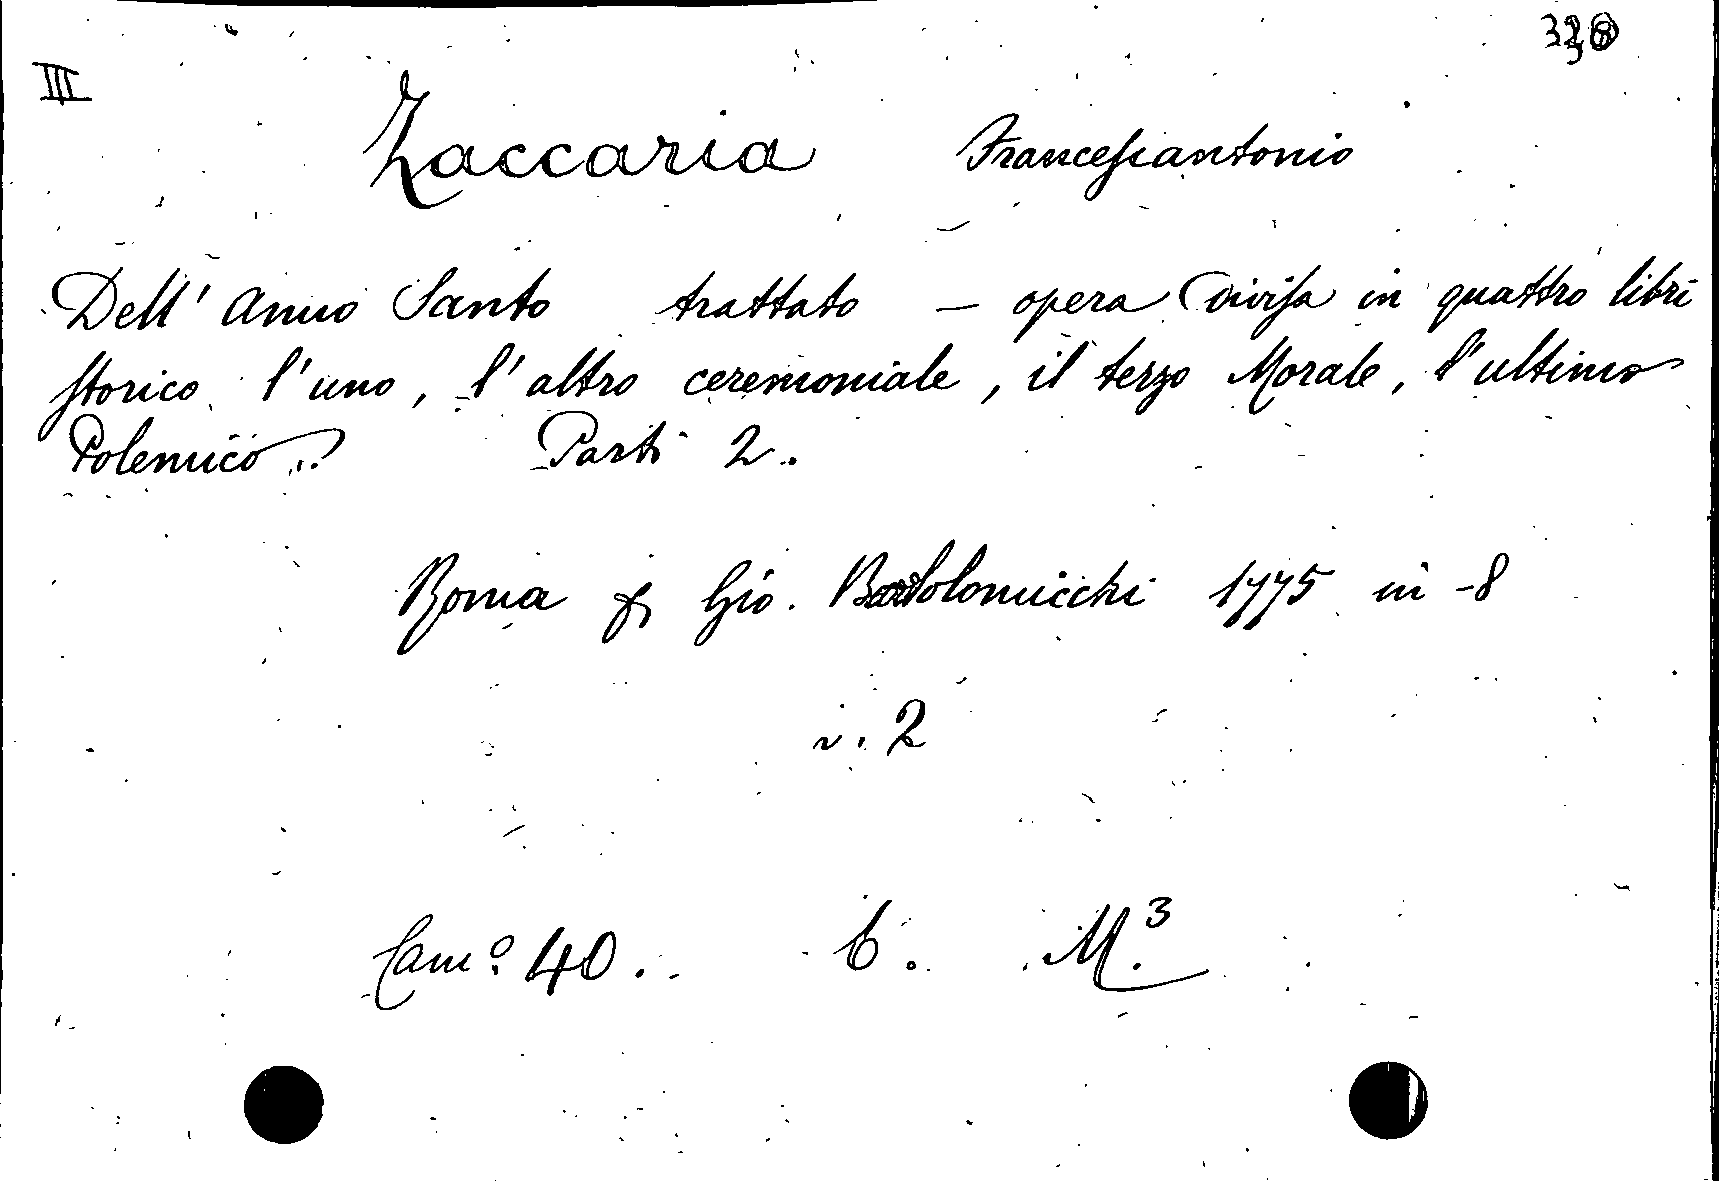 III
Zaccaria Francescantonio
Dell' Anno Santo trattato – opera divisa in quattro libri
storico l'uno, l'altro ceremoniale, il terzo Morale, l'ultimo
Polemico Parti 2.
Roma Gio. Bartolomicchi 1775 in -8
v. 2
Cam.º 40. 6. M.³